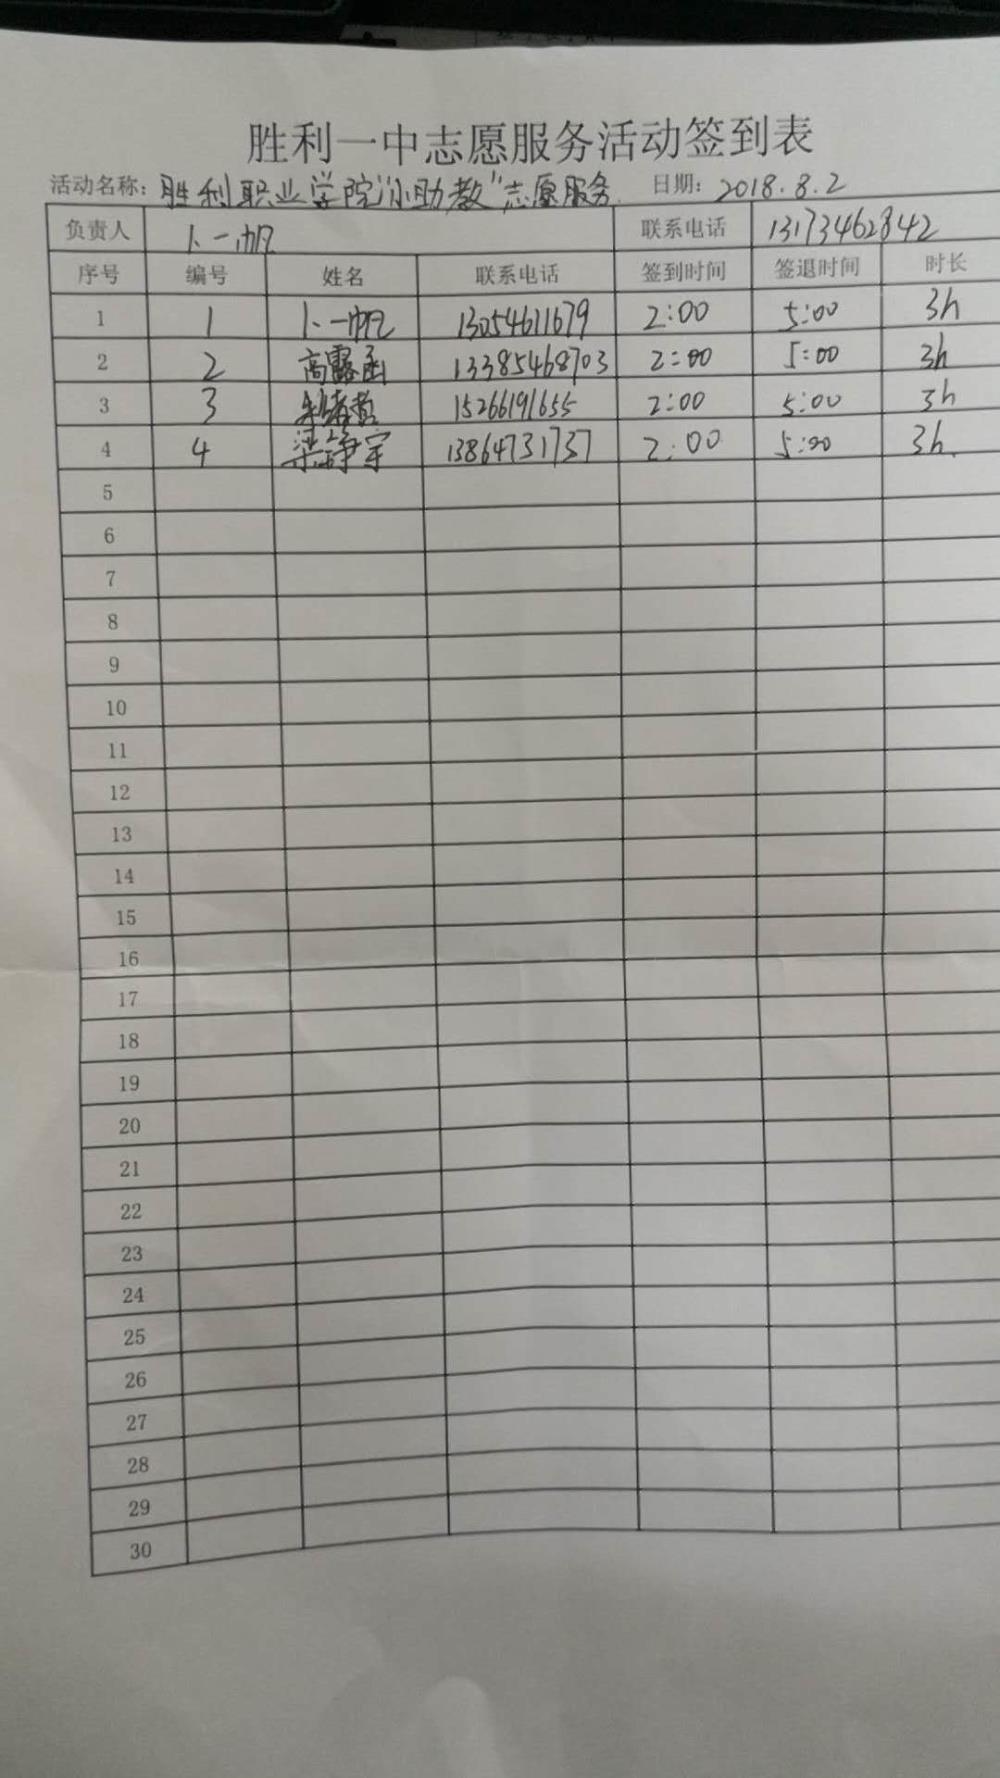 胜利一中志愿服务活动签到表
活动名称：胜利职业学院“小助教”志愿服务 日期：2018.8.2
负责人 卜一帆 联系电话 13173462842
序号 编号 姓名 联系电话 签到时间 签退时间 时长
1 1 卜一帆 13054611679 2:00 5:00 3h
2 2 高露函 13385468703 2:00 5:00 3h
3 3 15266191655 2:00 5:00 3h
4 4 梁铮宇 13864731737 2:00 5:00 3h.
5
6
7
8
9
10
11
12
13
14
15
16
17
18
19
20
21
22
23
24
25
26
27
28
29
30